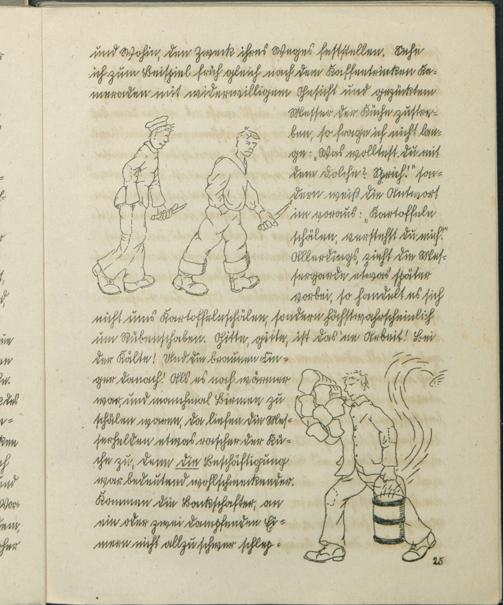 und Wohin, den Zweck ihres Weges feststellen. Sehe
ich zum Beispiel früh gleich nach dem Kaffeetrinken Ka-
meraden mit widerwilligem Gesicht und gezücktem
Messer der Küche zustre-
ben, so frage ich nicht lan-
ge: „Was wolltest Du mit
dem Dolche? Sprich!" son-
dern weiß die Antwort
im voraus: „Kartoffeln
schälen, verstehst Du mich?"
Allerdings, zieht die Mes-
sergarde etwas später
vorbei, so handelt es sich
nicht ums Kartoffelnschälen, sondern höchstwahrscheinlich
um Rübenschaben. Gitte, gitte, ist das ne Arbeit! Bei
der Kälte! Und die braunen Fin-
ger danach! Als es noch wärmer
war, und manchmal Birnen zu
schälen waren, da liefen die Mes-
serhelden etwas rascher der Kü-
che zu, denn die Beschäftigung
war bedeutend wohlschmeckender.
Kommen die Backschafter, an
ein oder zwei dampfenden Ei-
mern nicht allzu schwer schlep-
25